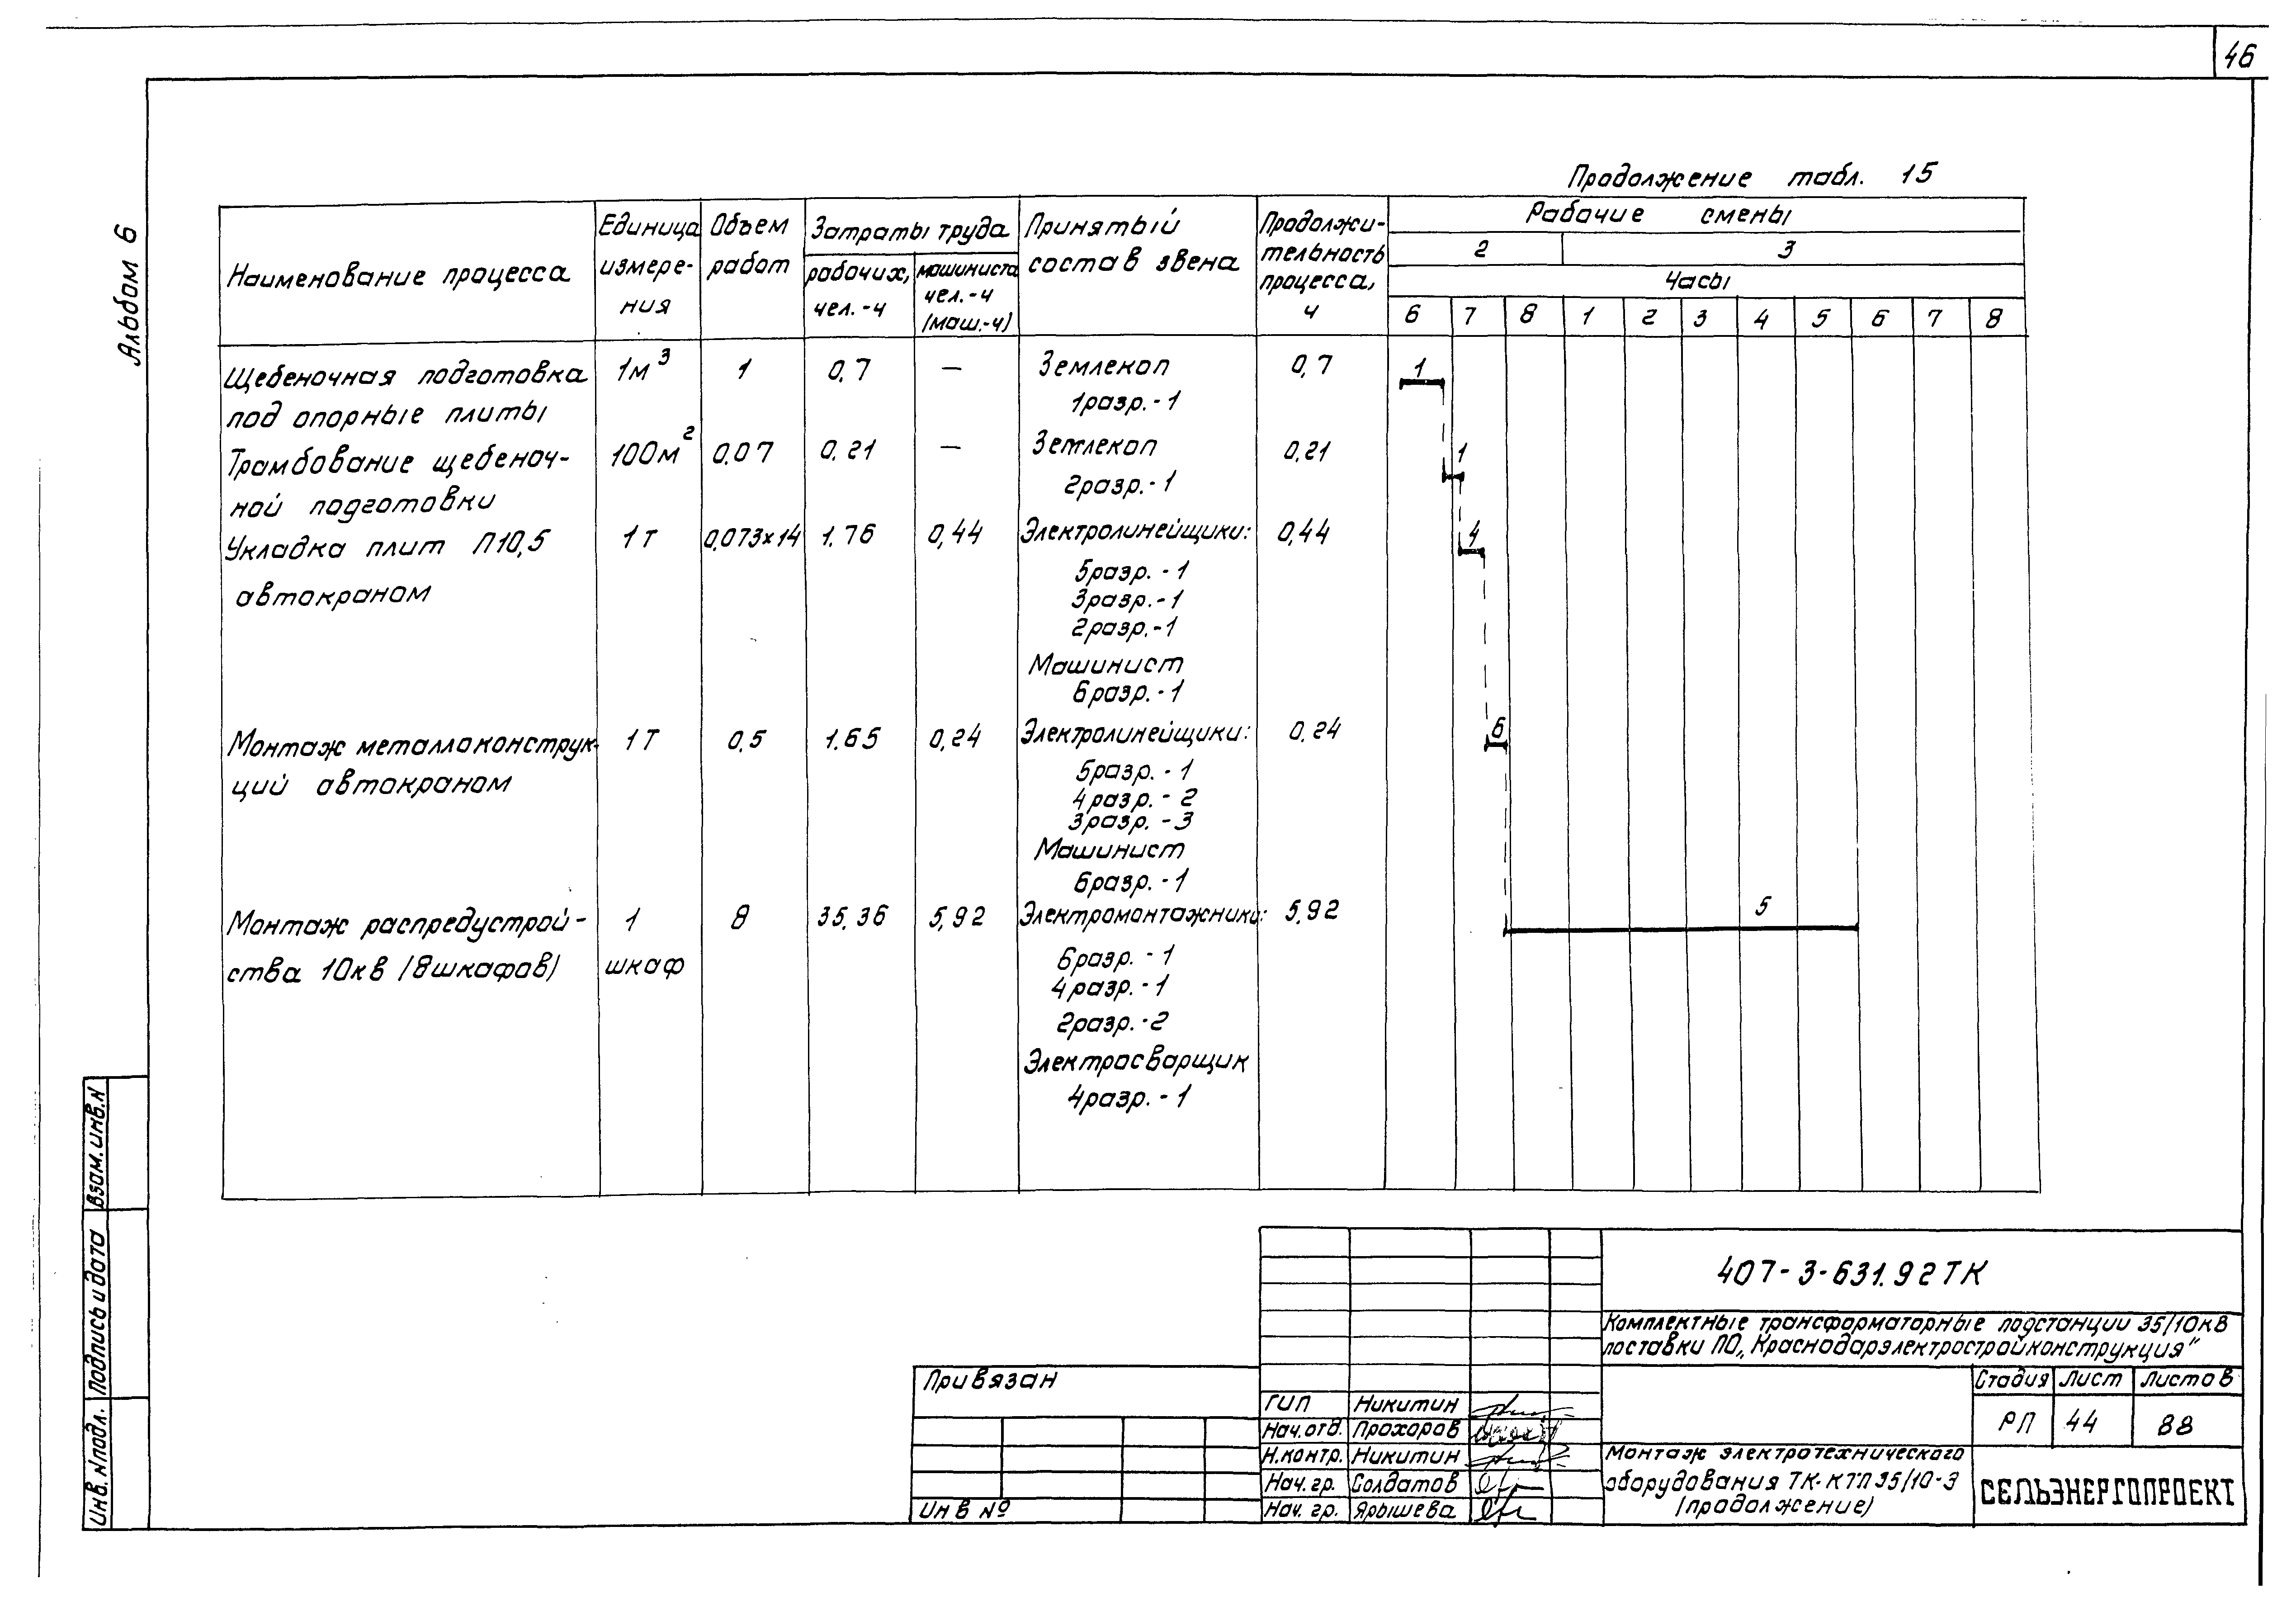 46
Альбом 6
Продолжение табл. 15
Наименование процесса
Единица измере-ния
Объем работ
Затраты труда
рабочих, чел.-ч
машиниста чел.-ч (маш.-ч)
Принятый состав звена
Продолжи-тельность процесса, ч
Рабочие смены
2 3
Часы
6 7 8 1 2 3 4 5 6 7 8
Щебеночная подготовка 1м³ 1 0,7 — Землекоп 0,7 1
под опорные плиты 1разр.-1
Трамбование щебеноч- 100м² 0.07 0,21 — Землекоп 0,21 1
ной подготовки 2разр.-1
Укладка плит П10,5 1т 0,073х14 1.76 0,44 Электролинейщики: 0,44 4
автокраном 5разр.-1
3разр.-1
2разр.-1
Машинист
6разр.-1
Монтаж металлоконструк- 1т 0,5 1.65 0,24 Электролинейщики: 0,24 6
ций автокраном 5разр.-1
4разр.-2
3разр.-3
Машинист
6разр.-1
Монтаж распредустрой- 1 8 35,36 5,92 Электромонтажники: 5,92 5
ства 10кв (8шкафов) шкаф 6разр.-1
4разр.-1
2разр.-2
Электросварщик
4разр.-1
Взам.инв.N
Подпись и дата
Инв.Nподл.
407-3-631.92ТК
Комплектные трансформаторные подстанции 35/10кВ
поставки ПО„Краснодарэлектростройконструкция"
Привязан
Инв №
ГИП Никитин
Нач.отд. Прохоров
Н.контр. Никитин
Нач.гр. Солдатов
Нач.гр. Ярышева
Стадия Лист Листов
РП 44 88
Монтаж электротехнического
оборудования ТК-КТП35/10-3
(продолжение)
СЕЛЬЭНЕРГОПРОЕКТ